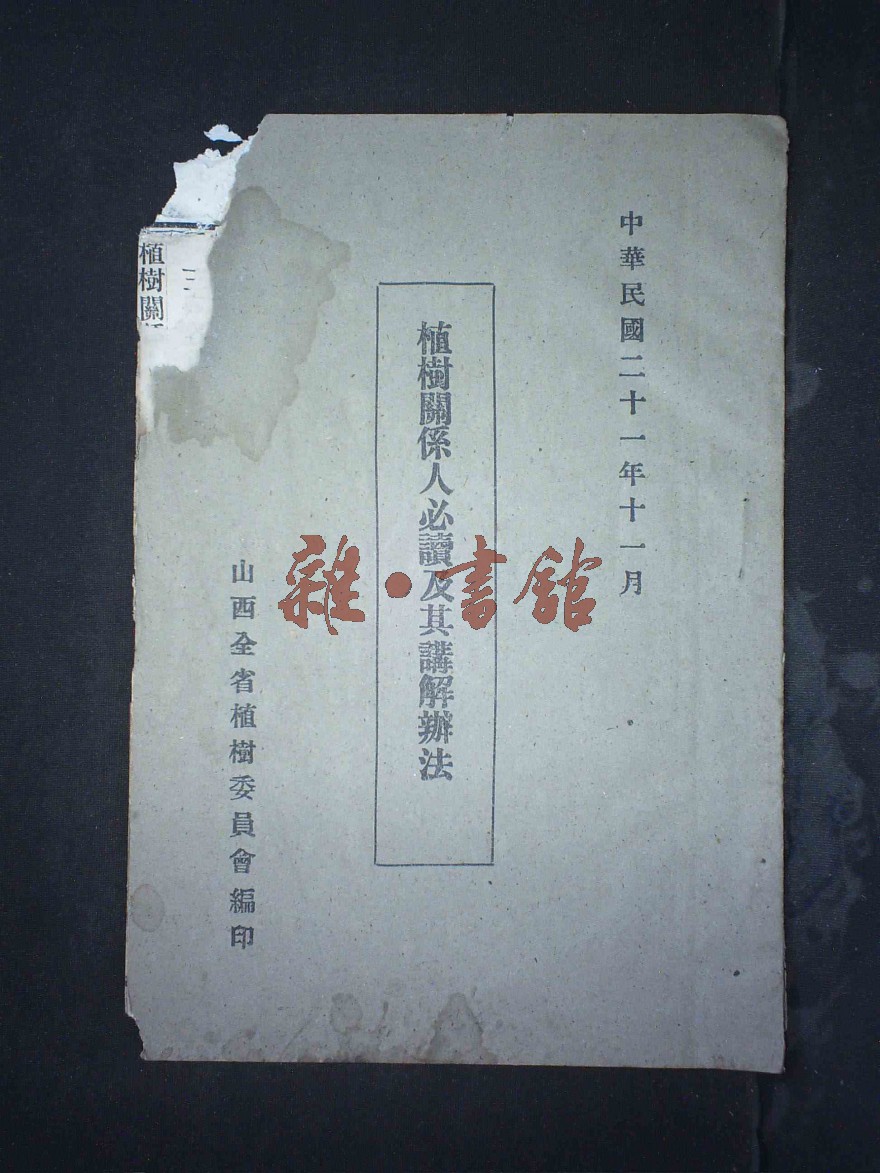 中華民國二十一年十一月
植樹關係人必讀及其講解辦法
山西全省植樹委員會編印
三
植樹關
雜·書館